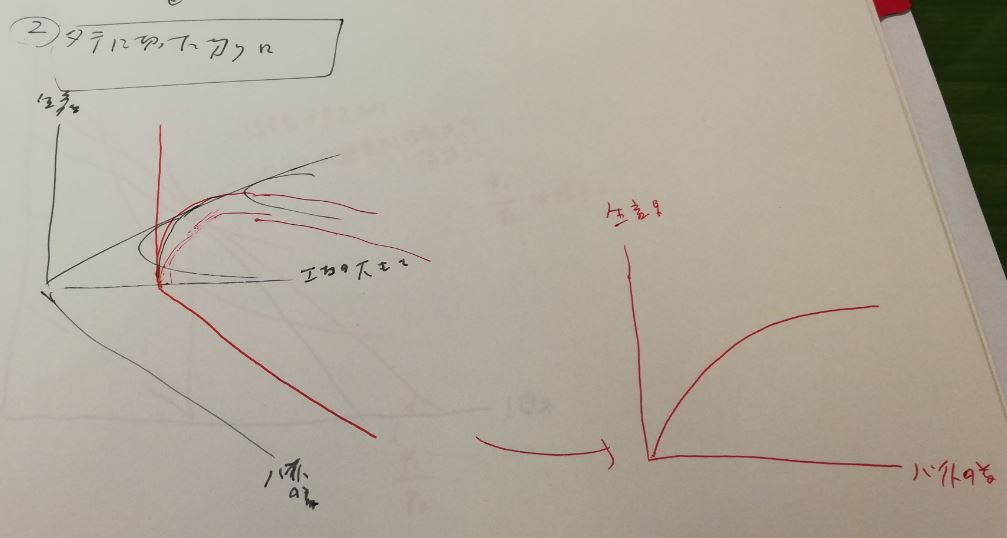 ②
タテに切った切り口
生産量
工場の大きさ
バイトの数
生産量
バイトの数